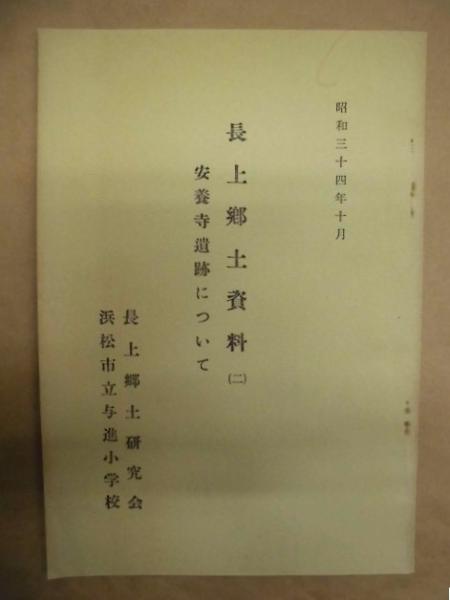 昭和三十四年十月
長上郷土資料(二)
安養寺遺跡について
長上郷土研究会
浜松市立与進小学校